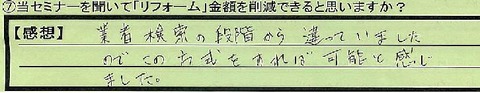 ⑦当セミナーを聞いて「リフォーム」金額を削減できると思いますか？
【感想】 業者検索の段階から違っていました
のでこの方式をすれば可能と感じ
ました。